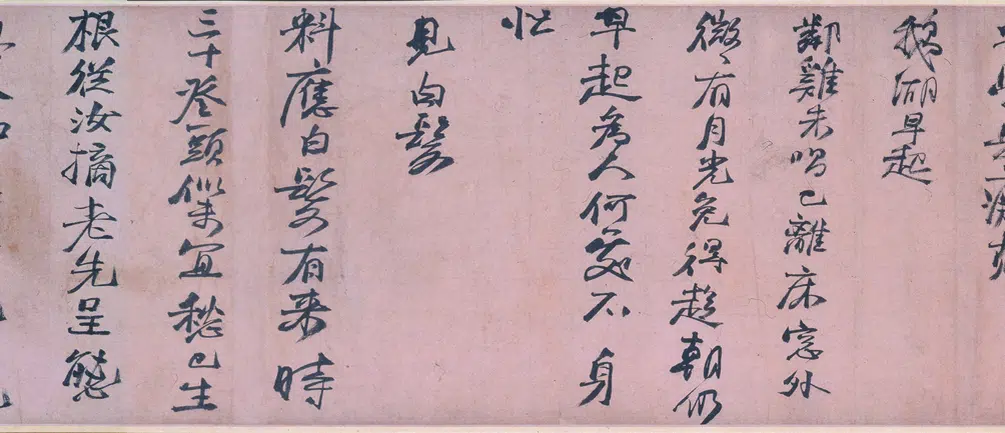 鵝湖早起
鄰雞未鳴已離床窓外
微〻有月光免得趨朝仍
早起為人何處不身
忙
見白髮
料應白髮有来時
三十登頭似未宜愁已生
根從汝摘老先呈態